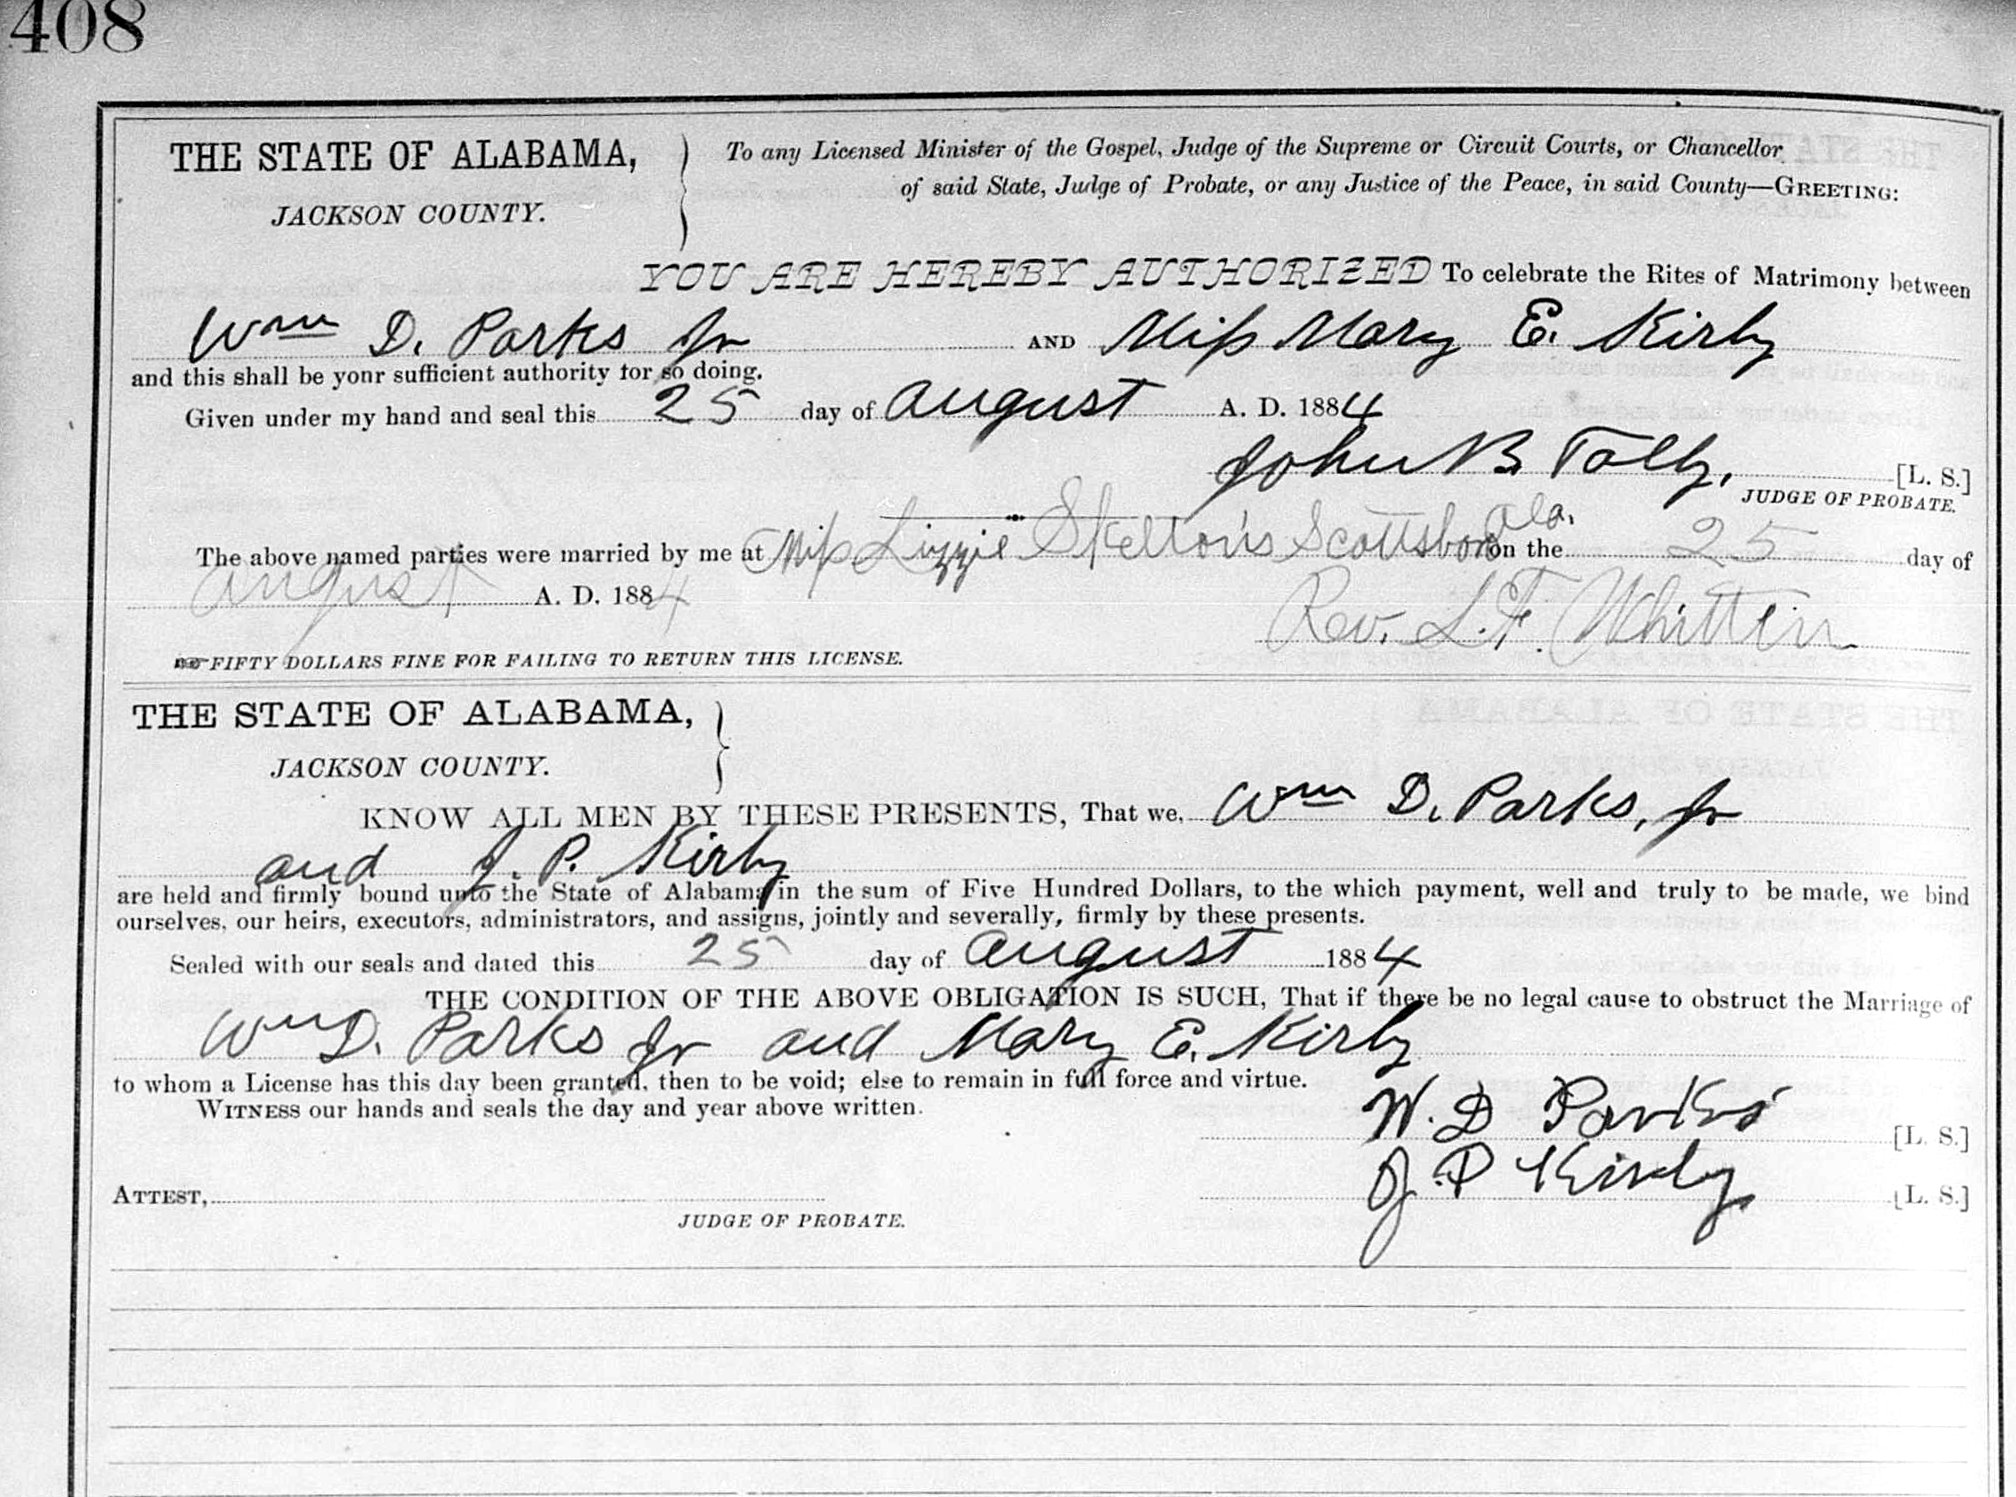 408
THE STATE OF ALABAMA,
JACKSON COUNTY.
To any Licensed Minister of the Gospel, Judge of the Supreme or Circuit Courts, or Chancellor
of said State, Judge of Probate, or any Justice of the Peace, in said County—GREETING:
YOU ARE HEREBY AUTHORIZED To celebrate the Rites of Matrimony between
Wm D. Parks Jr AND Miss Mary E. Kirby
and this shall be your sufficient authority for so doing.
Given under my hand and seal this 25 day of August A. D. 1884
John B. Tally, [L. S.]
JUDGE OF PROBATE.
The above named parties were married by me at Miss Lizzie Skelton's Scottsboro Ala. on the 25 day of
August A. D. 1884
Rev. L. F. Whitten
FIFTY DOLLARS FINE FOR FAILING TO RETURN THIS LICENSE.
THE STATE OF ALABAMA,
JACKSON COUNTY.
KNOW ALL MEN BY THESE PRESENTS, That we, Wm D. Parks, Jr
and J. P. Kirby
are held and firmly bound unto the State of Alabama in the sum of Five Hundred Dollars, to the which payment, well and truly to be made, we bind
ourselves, our heirs, executors, administrators, and assigns, jointly and severally, firmly by these presents.
Sealed with our seals and dated this 25 day of August 1884
THE CONDITION OF THE ABOVE OBLIGATION IS SUCH, That if there be no legal cause to obstruct the Marriage of
Wm D. Parks Jr and Mary E. Kirby
to whom a License has this day been granted, then to be void; else to remain in full force and virtue.
WITNESS our hands and seals the day and year above written.
W. D Parks [L. S.]
J. P Kirby [L. S.]
ATTEST,
JUDGE OF PROBATE.